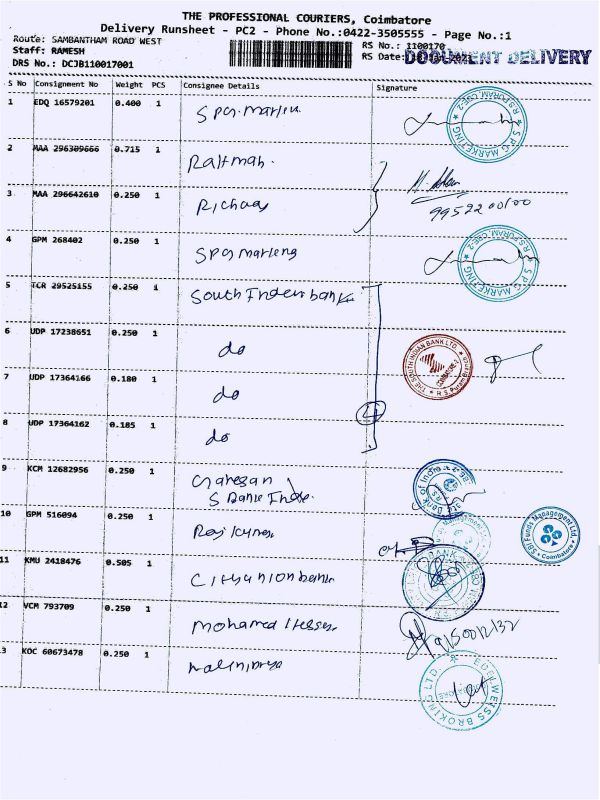 THE PROFESSIONAL COURIERS, Coimbatore
Delivery Runsheet - PC2 - Phone No.:0422-3505555 - Page No.:1
Route: SAMBANTHAM ROAD WEST
RS No.: 1100170
Staff: RAMESH
RS Date:
DOCUMENT DELIVERY
DRS No.: DCJB110017001
S No Consignment No Weight PCS Consignee Details Signature
1 EDQ 16579201 0.400 1
SPG MARKETING R S PURAM, CBE-2
2 MAA 296309666 0.715 1
3 MAA 296642610 0.250 1 Richaas
4 GPM 268402 0.250 1
SPG MARKETING R S PURAM, CBE-2
5 TCR 29525155 0.250 1 South Indian bank
6 UDP 17238651 0.250 1 do
THE SOUTH INDIAN BANK LTD.
7 UDP 17364166 0.180 1 do
8 UDP 17364162 0.185 1 do
4
9 KCM 12682956 0.250 1 Ganesan
Bank of India
10 GPM 516094 0.250 1 Rajkumar
SBI Funds Management Coimbatore
11 KMU 2418476 0.505 1 City union bank
12 VCM 793709 0.250 1 Mohamed
13 KOC 60673478 0.250 1
EDELWEISS BROKING LTD